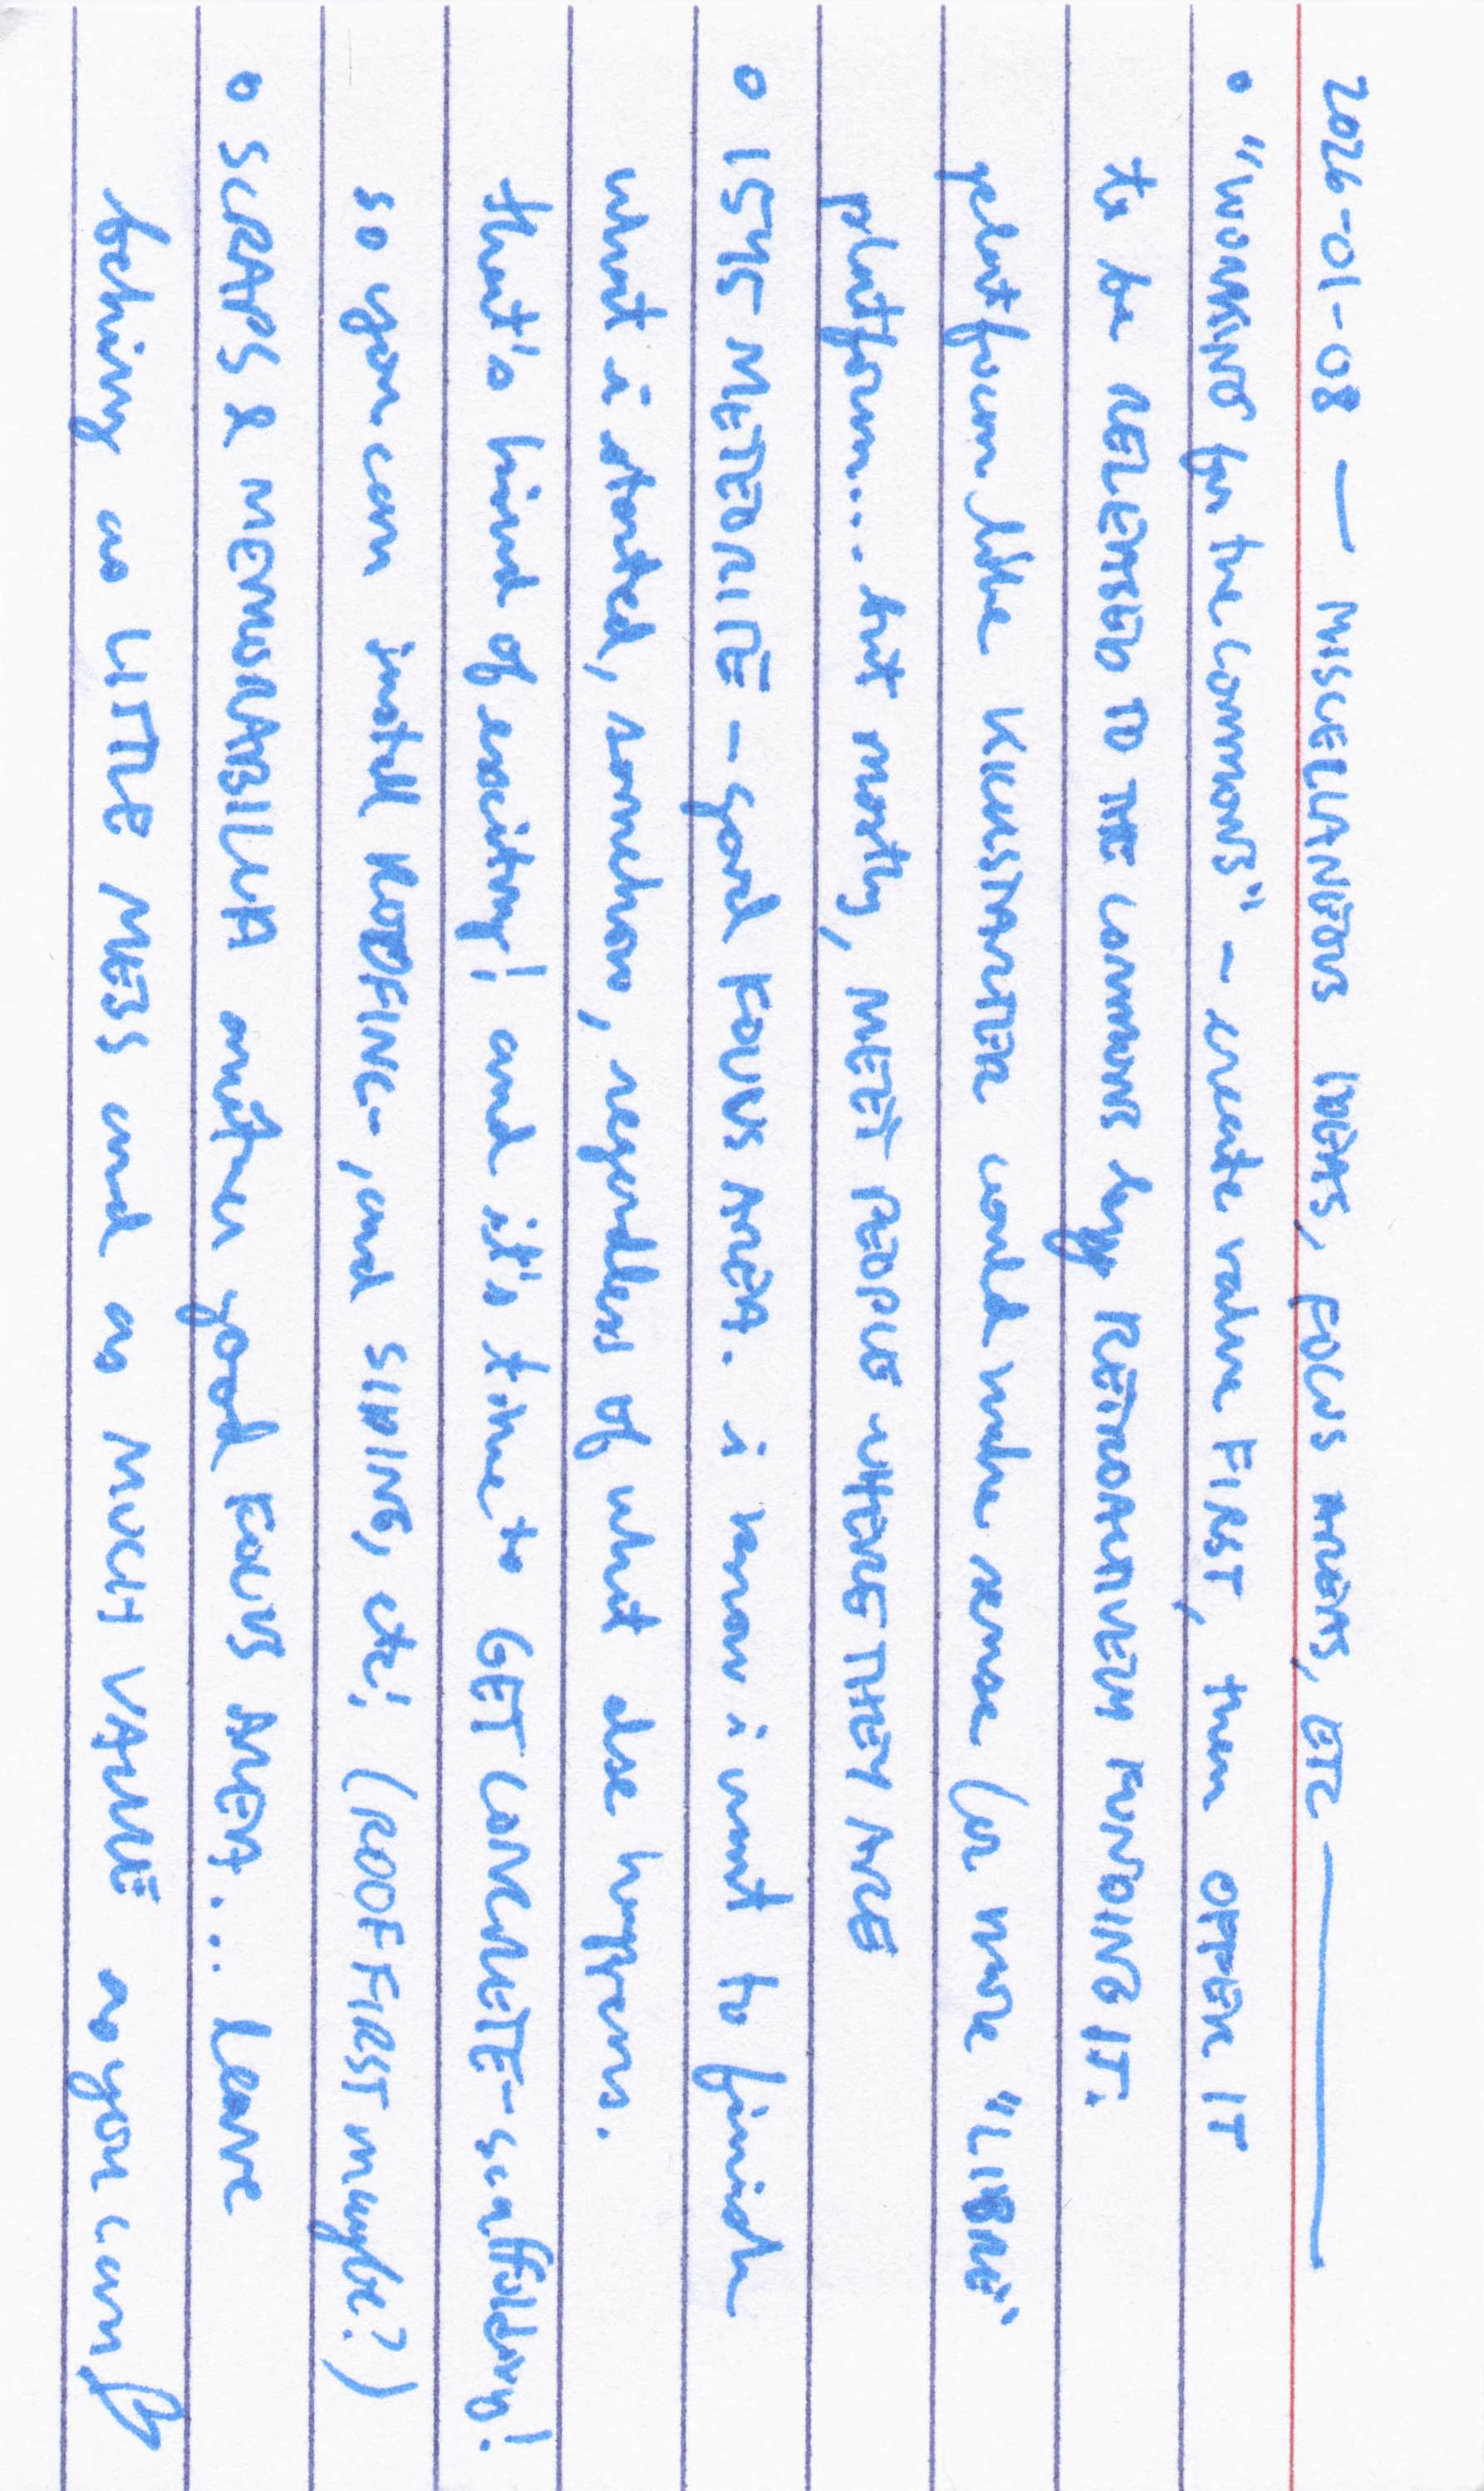 2026-01-08 — MISCELLANEOUS IDEAS, FOCUS AREAS, ETC —
• "WORKING for the COMMONS" - create value FIRST, then OFFER IT
to be RELEASED TO THE COMMONS by RETROACTIVELY FUNDING IT.
platform like KICKSTARTER could make sense (or more "LIBRE"
platform... but mostly, MEET PEOPLE WHERE THEY ARE
• 1545 METEORITE - good FOCUS AREA. i know i want to finish
what i started, somehow, regardless of what else happens.
that's kind of exciting! and it's time to GET CONCRETE-scaffolding!
so you can install ROOFING-, and SIDING, etc! (ROOF FIRST maybe?)
• SCRAPS & MEMORABILIA another good FOCUS AREA... leave
behind as LITTLE MESS and as MUCH VALUE as you can